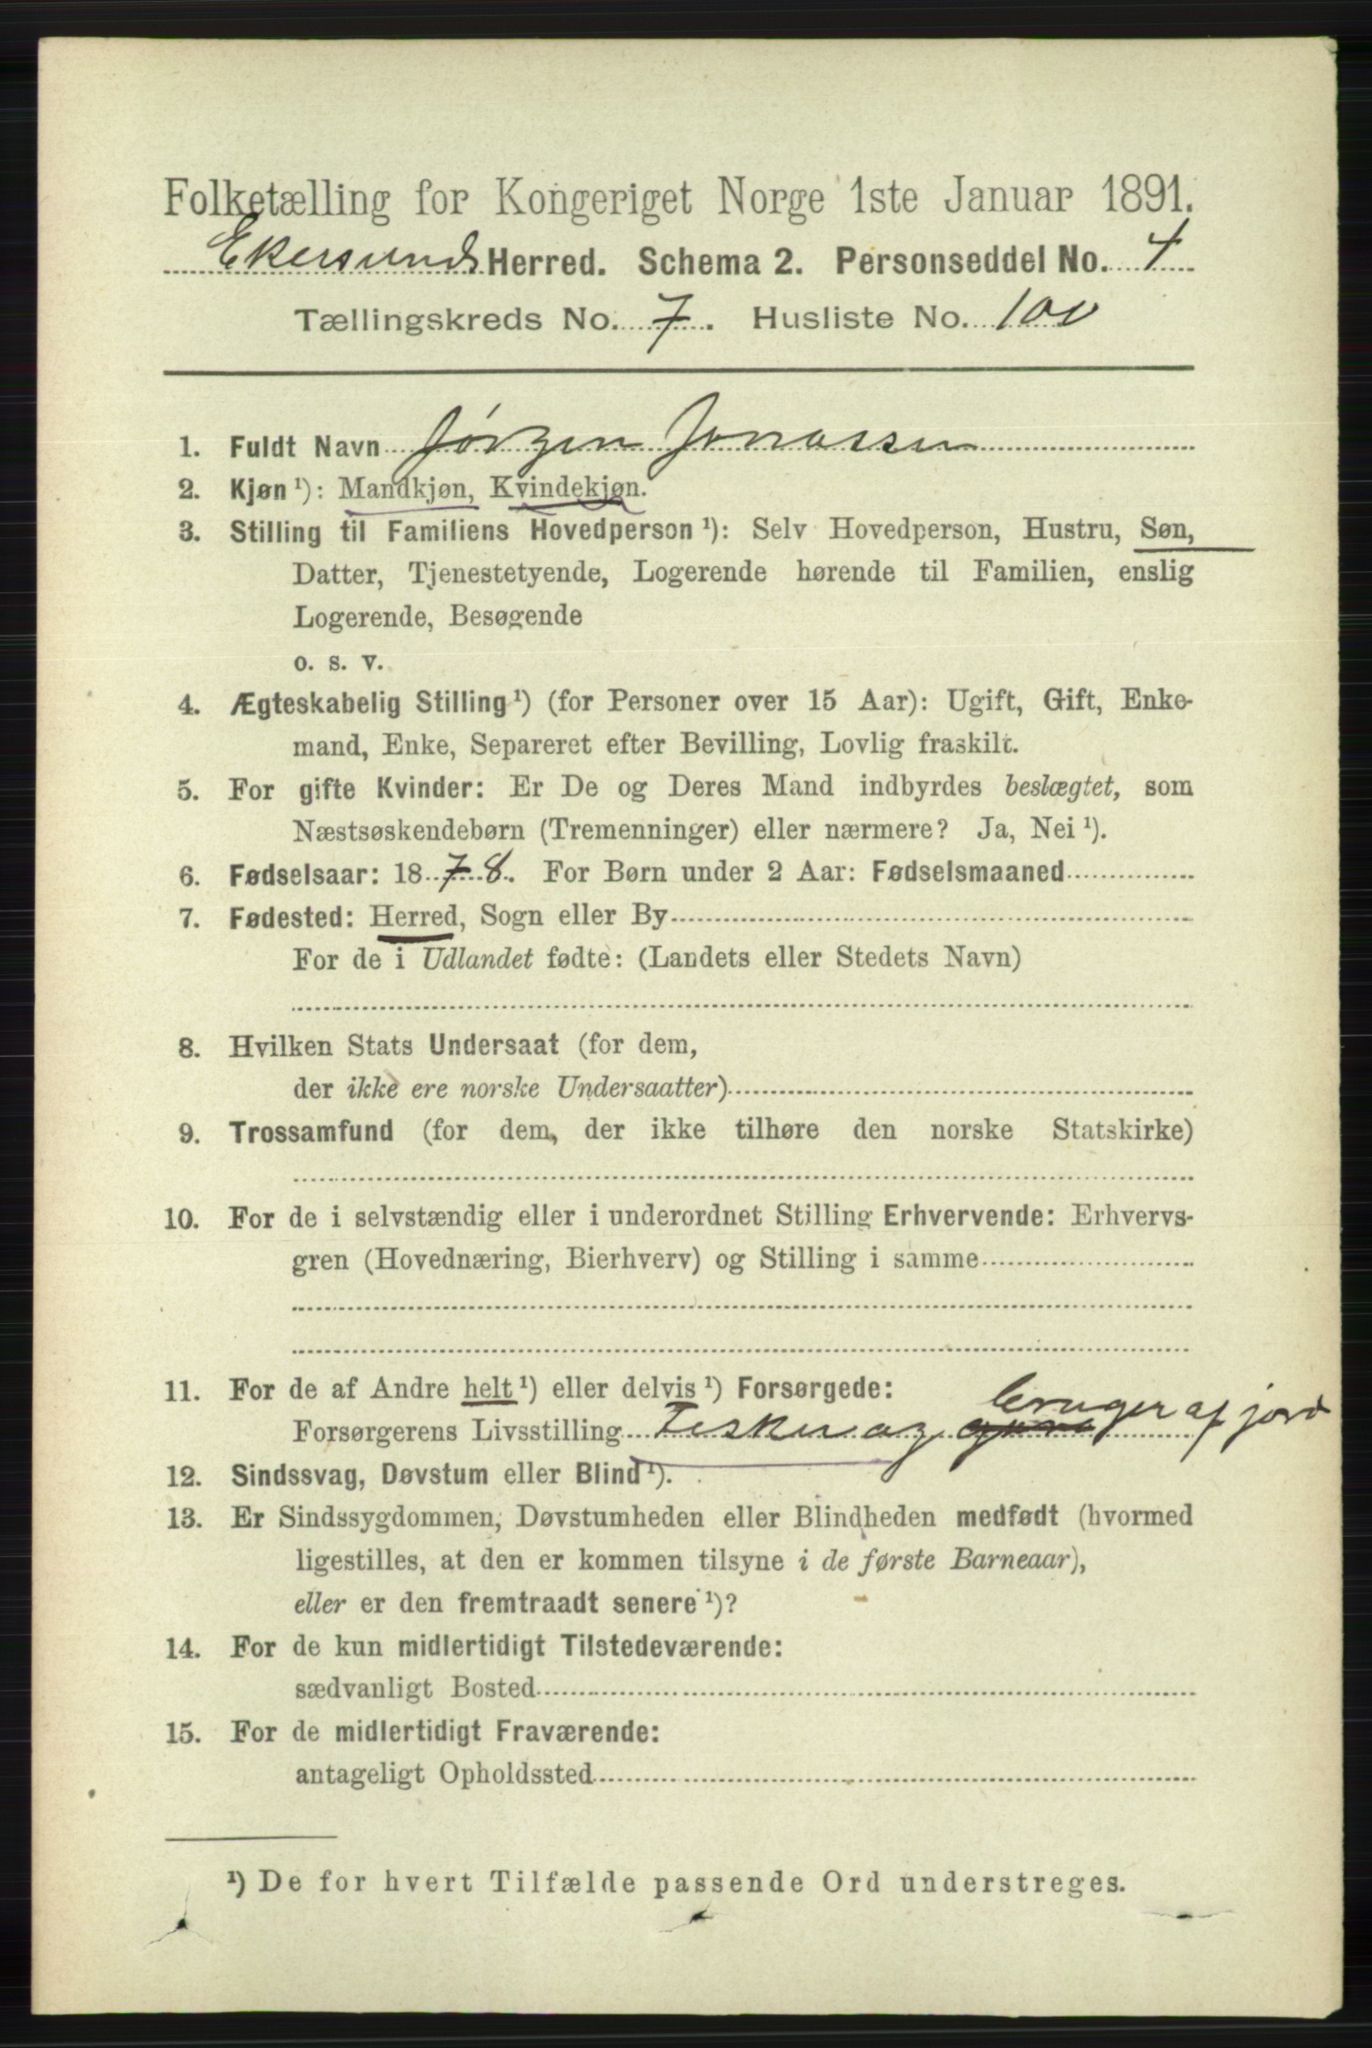 Folketælling for Kongeriget Norge 1ste Januar 1891.
Ekersunds Herred. Schema 2. Personseddel No. 4
Tællingskreds No. 7. Husliste No. 100
1. Fuldt Navn Jörgen Jonassen
2. Kjøn¹): Mandkjøn, Kvindekjøn.
3. Stilling til Familiens Hovedperson¹): Selv Hovedperson, Hustru, Søn,
Datter, Tjenestetyende, Logerende hørende til Familien, enslig
Logerende, Besøgende
o. s. v.
4. Ægteskabelig Stilling¹) (for Personer over 15 Aar): Ugift, Gift, Enke-
mand, Enke, Separeret efter Bevilling, Lovlig fraskilt.
5. For gifte Kvinder: Er De og Deres Mand indbyrdes beslægtet, som
Næstsøskendebørn (Tremenninger) eller nærmere? Ja, Nei¹).
6. Fødselsaar: 1878. For Børn under 2 Aar: Fødselsmaaned
7. Fødested: Herred, Sogn eller By
For de i Udlandet fødte: (Landets eller Stedets Navn)
8. Hvilken Stats Undersaat (for dem,
der ikke ere norske Undersaatter)
9. Trossamfund (for dem, der ikke tilhøre den norske Statskirke)
10. For de i selvstændig eller i underordnet Stilling Erhvervende: Erhvervs-
gren (Hovednæring, Bierhverv) og Stilling i samme
11. For de af Andre helt¹) eller delvis¹) Forsørgede:
Forsørgerens Livsstilling Fisker og bruger af jord
12. Sindssvag, Døvstum eller Blind¹).
13. Er Sindssygdommen, Døvstumheden eller Blindheden medfødt (hvormed
ligestilles, at den er kommen tilsyne i de første Barneaar),
eller er den fremtraadt senere¹)?
14. For de kun midlertidigt Tilstedeværende:
sædvanligt Bosted
15. For de midlertidigt Fraværende:
antageligt Opholdssted
¹) De for hvert Tilfælde passende Ord understreges.